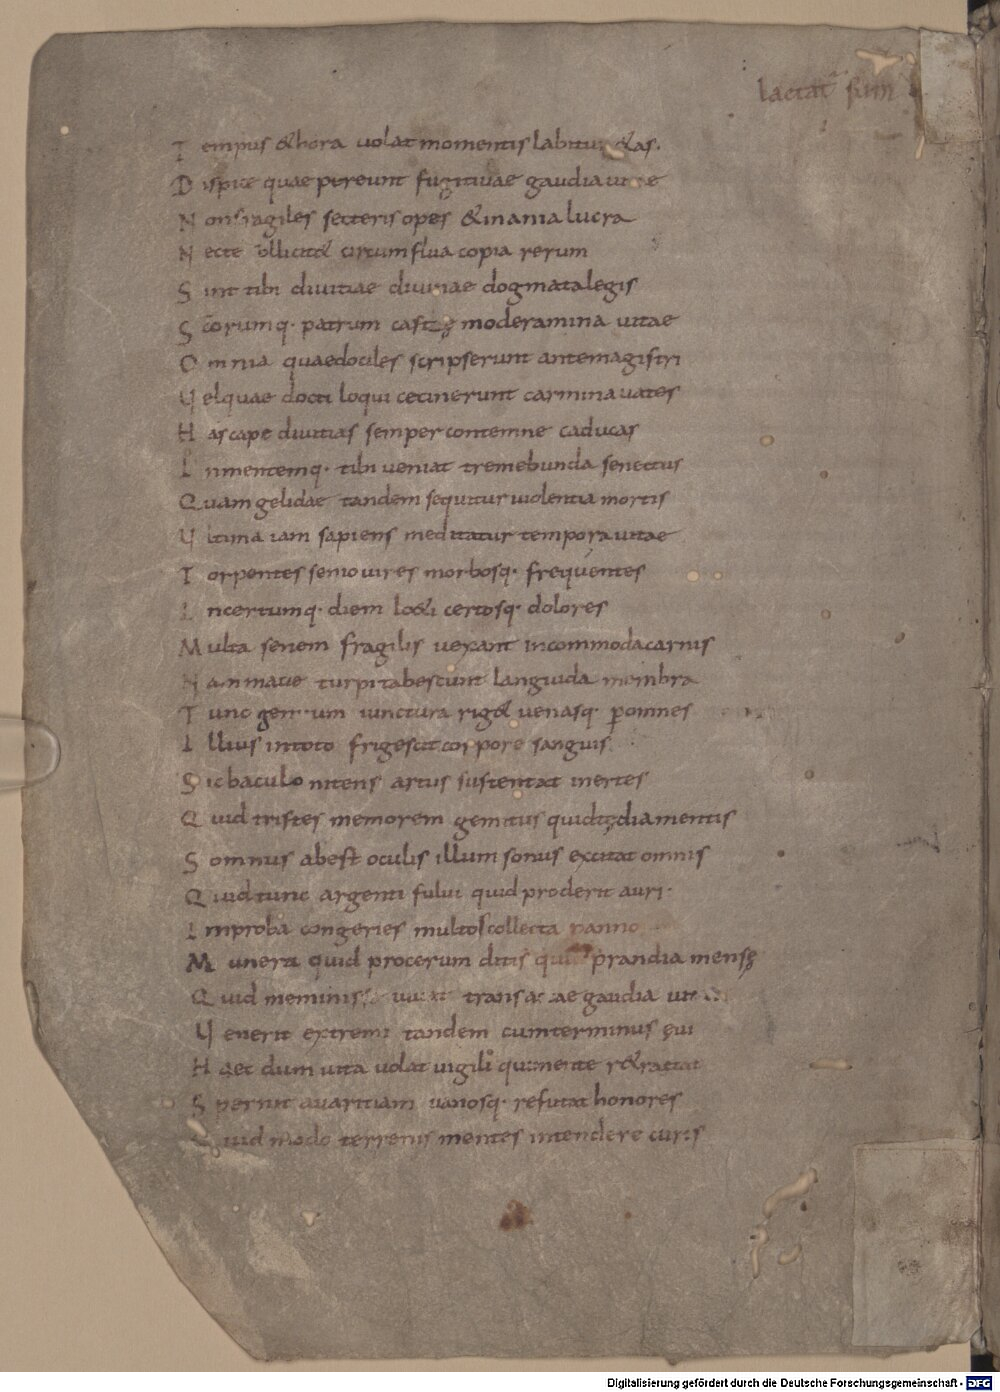 lactat sum
Tempus & hora uolat momentis labitur &as.
Dispice quae pereunt fugitiuae gaudia uitae
Non fragiles secteris opes & inania lucra
Nec te sollicit& circumflua copia rerum
Sint tibi diuitiae diuinae dogmata legis
Scorumq· patrum castę moderamina uitae
Omnia quae dociles scripserunt ante magistri
Vel quae docti loqui cecinerunt carmina uates
Has cape diuitias semper contemne caducas
In mentemq· tibi ueniat tremebunda senectus
Quam gelidae tandem sequitur uiolentia mortis
Vltima iam sapiens meditatur tempora uitae
Torpentes senio uires morbosq· frequentes
Incertumq· diem lo&i certosq· dolores
Multa senem fragilis uexant incommoda carnis
Nam macie turpi tabescunt languida membra
Tunc genuum iunctura rig& uenasq· p omnes
Illius in toto frigescit corpore sanguis
Sic baculo nitens artus sustentat inertes
Quid tristes memorem gemitus quid tędia mentis
Somnus abest oculis illum sonus excitat omnis
Quid tunc argenti fului quid proderit auri·
Improba congeries multos collecta p annos
Munera quid procerum ditis quid prandia mensę
Quid meminisse iuuat transactae gaudia uitae
Venerit extremi tandem cum terminus ęui
Haec dum uita uolat uigili qui mente r&ractat
Spernit auaritiam uanosq· refutat honores
Quid modo terrenis mentes intendere curis
Digitalisierung gefördert durch die Deutsche Forschungsgemeinschaft - DFG